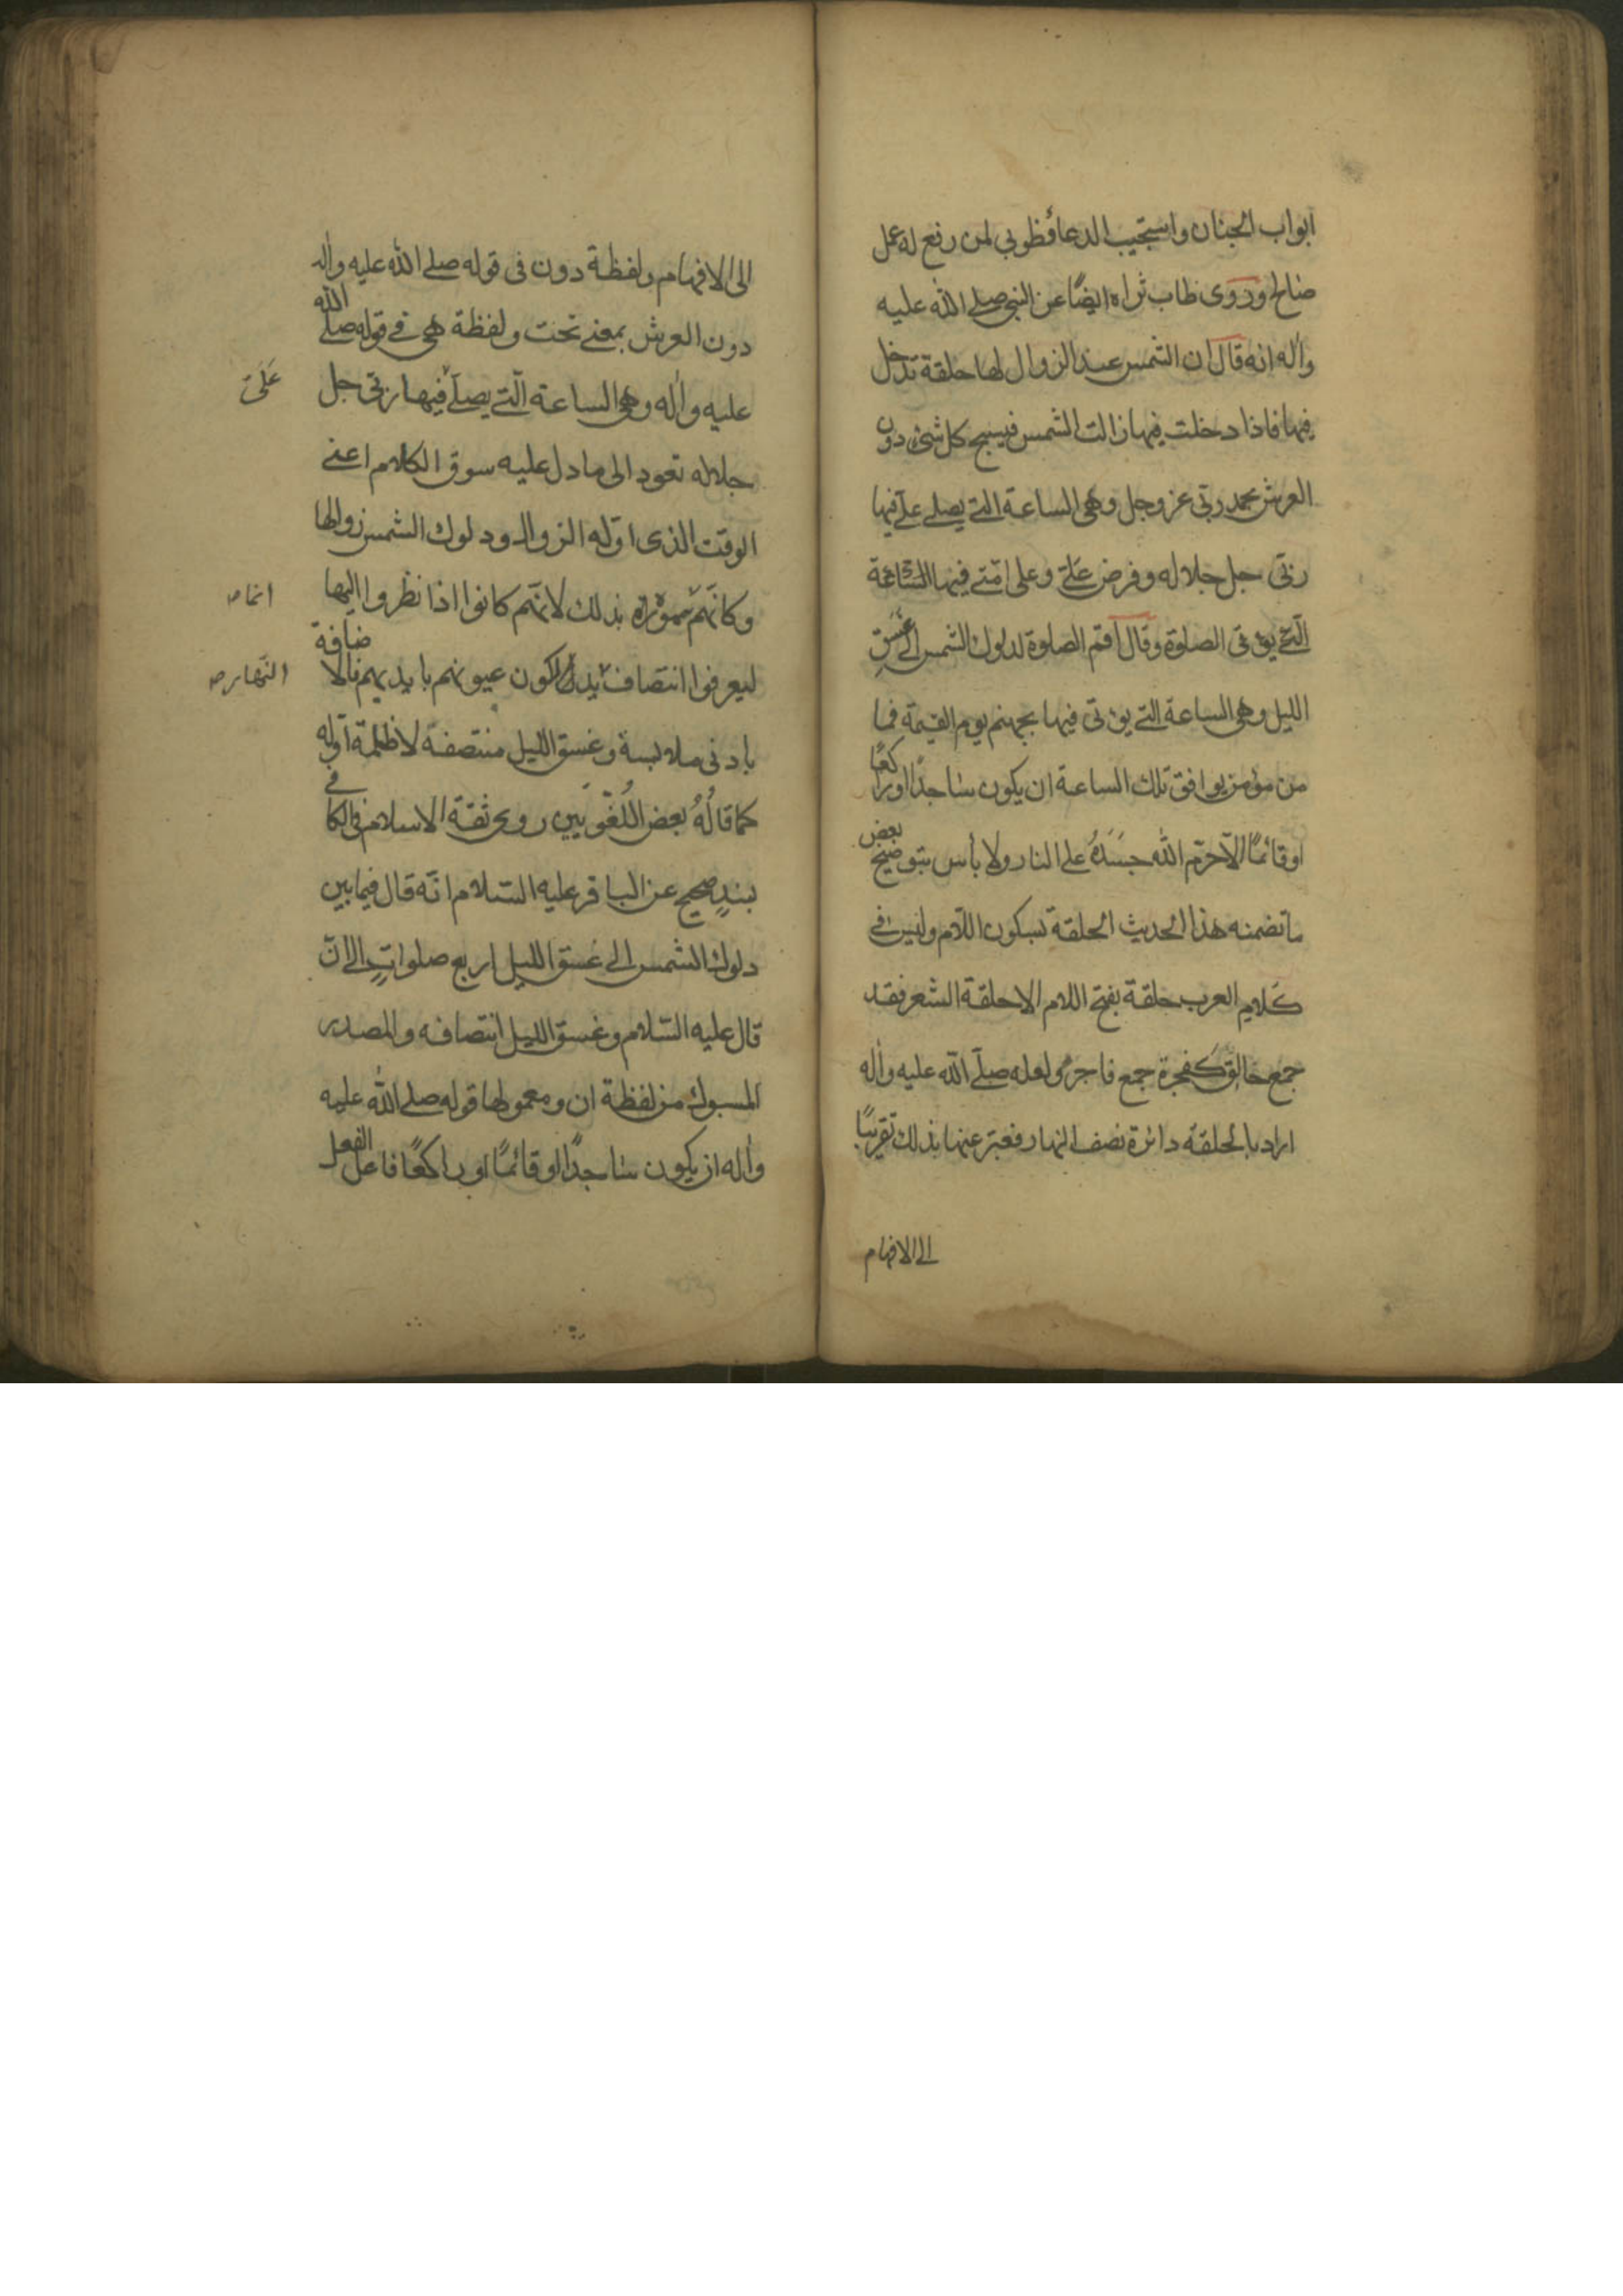 ابواب الجنان واستجيب الدعا فطوبى لمن رفع له عمل
صالح وروى طاب ثراه ايضًا عن النبى صلى الله عليه
واله انه قال ان الشمس عند الزوال لها حلقة تدخل
فيها فاذا دخلت فيها زالت الشمس فيسبح كل شئ دون
العرش بحمد ربى عز وجل وهى الساعة التى يصلى علىّ فيها
ربى جل جلاله وفرض علىّ وعلى امتى فيها الساعة
التى يؤتى الصلوة وقال اقم الصلوة لدلوك الشمس الى غسق
الليل وهى الساعة التى يؤتى فيها بجهنم يوم القيمة فما
من مؤمن يوافق تلك الساعة ان يكون ساجدًا او راكعًا
او قائمًا الا حرّم الله جسده على النار ولا بأس بتوضيح بعض
ما تضمنه هذا الحديث الحلقة بسكون اللام وليس فى
كلام العرب حلقة بفتح اللام الا حلقة الشعر فقد
جمع حالق كفجرة جمع فاجر ولعله صلى الله عليه واله
اراد بالحلقة دائرة نصف النهار فعبر عنها بذلك تقريبًا
الى الافهام
الى الافهام ولفظة دون فى قوله صلى الله عليه واله
دون العرش بمعنى تحت ولفظة هى فى قوله صلى الله
عليه واله وهى الساعة التى يصلى فيها ربى جل
علىّ
جلاله تعود الى ما دل عليه سوق الكلام اعنى
الوقت الذى اوله الزوال ودلوك الشمس زوالها
وكانّهم سموه بذلك لانهم كانوا اذا نظروا اليها
انما صه
ليعرفوا انتصاف يدلكون عيونهم بايديهم فالاضافة
النهار صه
بادنى ملابسة وغسق الليل منتصفه لا ظلمة اوله
كما قاله بعض اللغويين روى ثقة الاسلام فى الكافى
بسند صحيح عن الباقر عليه السلام انه قال فيما بين
دلوك الشمس الى غسق الليل اربع صلوات الى ان
قال عليه السلام وغسق الليل انتصافه والمصدر
المسبوك من لفظة ان ومعمولها قوله صلى الله عليه
واله ان يكون ساجدًا او قائمًا او راكعًا فاعل الفعل